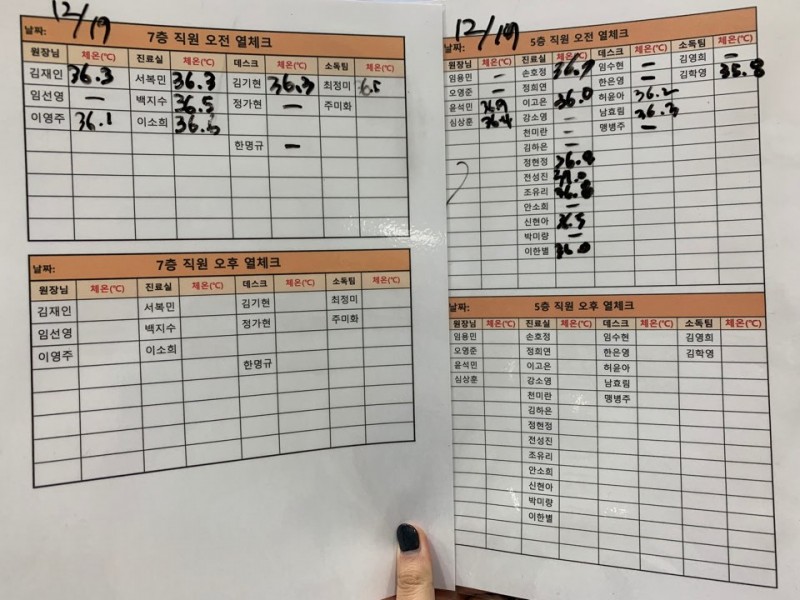 12/19
날짜: 7층 직원 오전 열체크
원장님 체온(℃) 진료실 체온(℃) 데스크 체온(℃) 소독팀 체온(℃)
김재인 36.3 서복민 36.3 김기현 36.3 최정미
임선영 — 백지수 36.5 정가현 — 주미화
이영주 36.1 이소희
한명규 —
날짜: 7층 직원 오후 열체크
원장님 체온(℃) 진료실 체온(℃) 데스크 체온(℃) 소독팀 체온(℃)
김재인 서복민 김기현 최정미
임선영 백지수 정가현 주미화
이영주 이소희
한명규
12/19
날짜: 5층 직원 오전 열체크
원장님 체온(℃) 진료실 체온(℃) 데스크 체온(℃) 소독팀 체온(℃)
임용민 — 손호정 36.7 임수현 — 김영희 —
오영준 — 정희연 한은영 — 김학영 35.8
윤석민 이고은 36.0 허윤아 36.2
심상훈 36.4 강소영 — 남효림 36.3
천미란 — 맹병주 —
김하은 —
정현정
전성진
조유리 36.8
안소희 —
신현아
박미량 —
이한별 36.0
날짜: 5층 직원 오후 열체크
원장님 체온(℃) 진료실 체온(℃) 데스크 체온(℃) 소독팀 체온(℃)
임용민 손호정 임수현 김영희
오영준 정희연 한은영 김학영
윤석민 이고은 허윤아
심상훈 강소영 남효림
천미란 맹병주
김하은
정현정
전성진
조유리
안소희
신현아
박미량
이한별